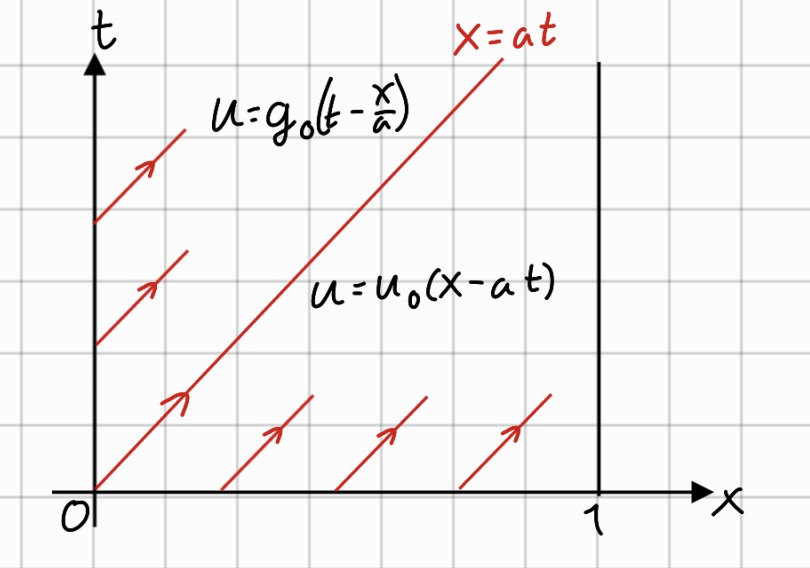 t
x = at
u = g₀(t - x/a)
u = u₀(x - at)
0
1
x